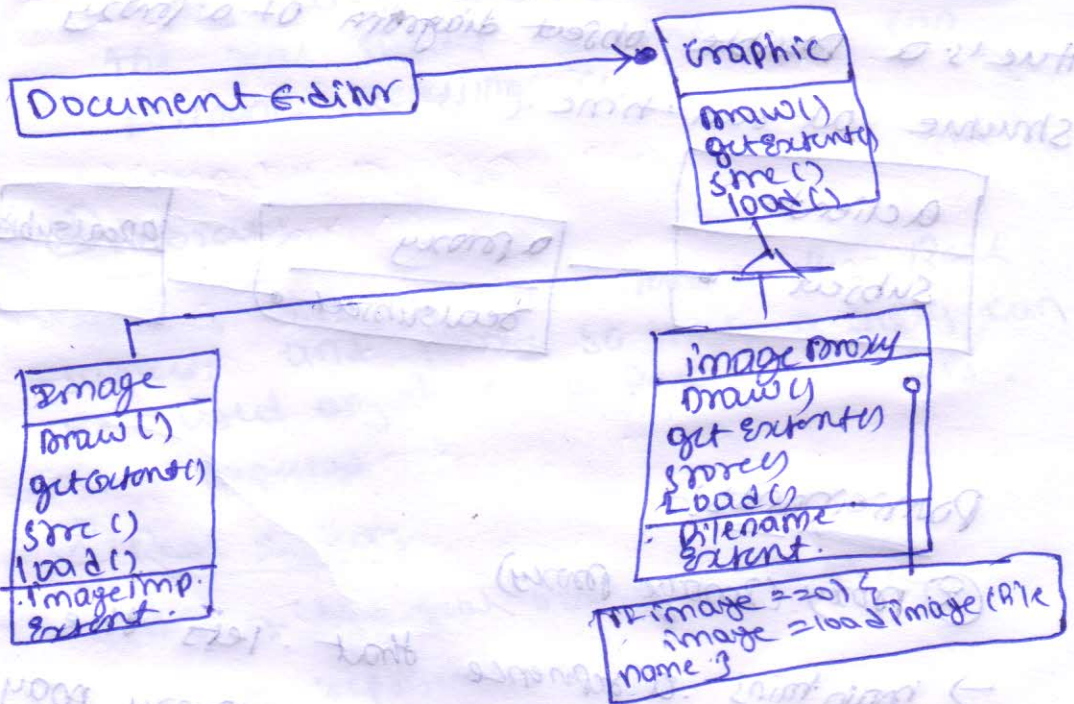 Document Editor
Graphic
Draw()
getExtent()
store()
load()
Image
Draw()
getExtent()
store()
load()
imageimp.
Extent.
image proxy
Draw()
getExtent()
store()
Load()
filename
Extent.
if image ==0) {
image = loadimage (file
name }